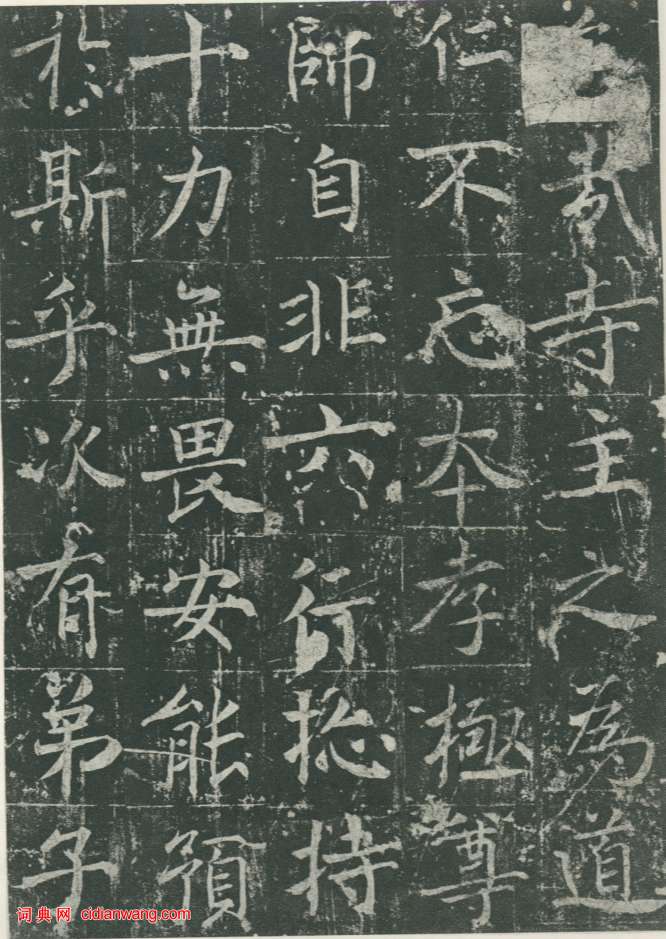 哉寺主之為道
仁不忘本孝極尊
師自非六行揔持
十力無畏安能預
於斯乎次有弟子
词典网 cidianwang.com